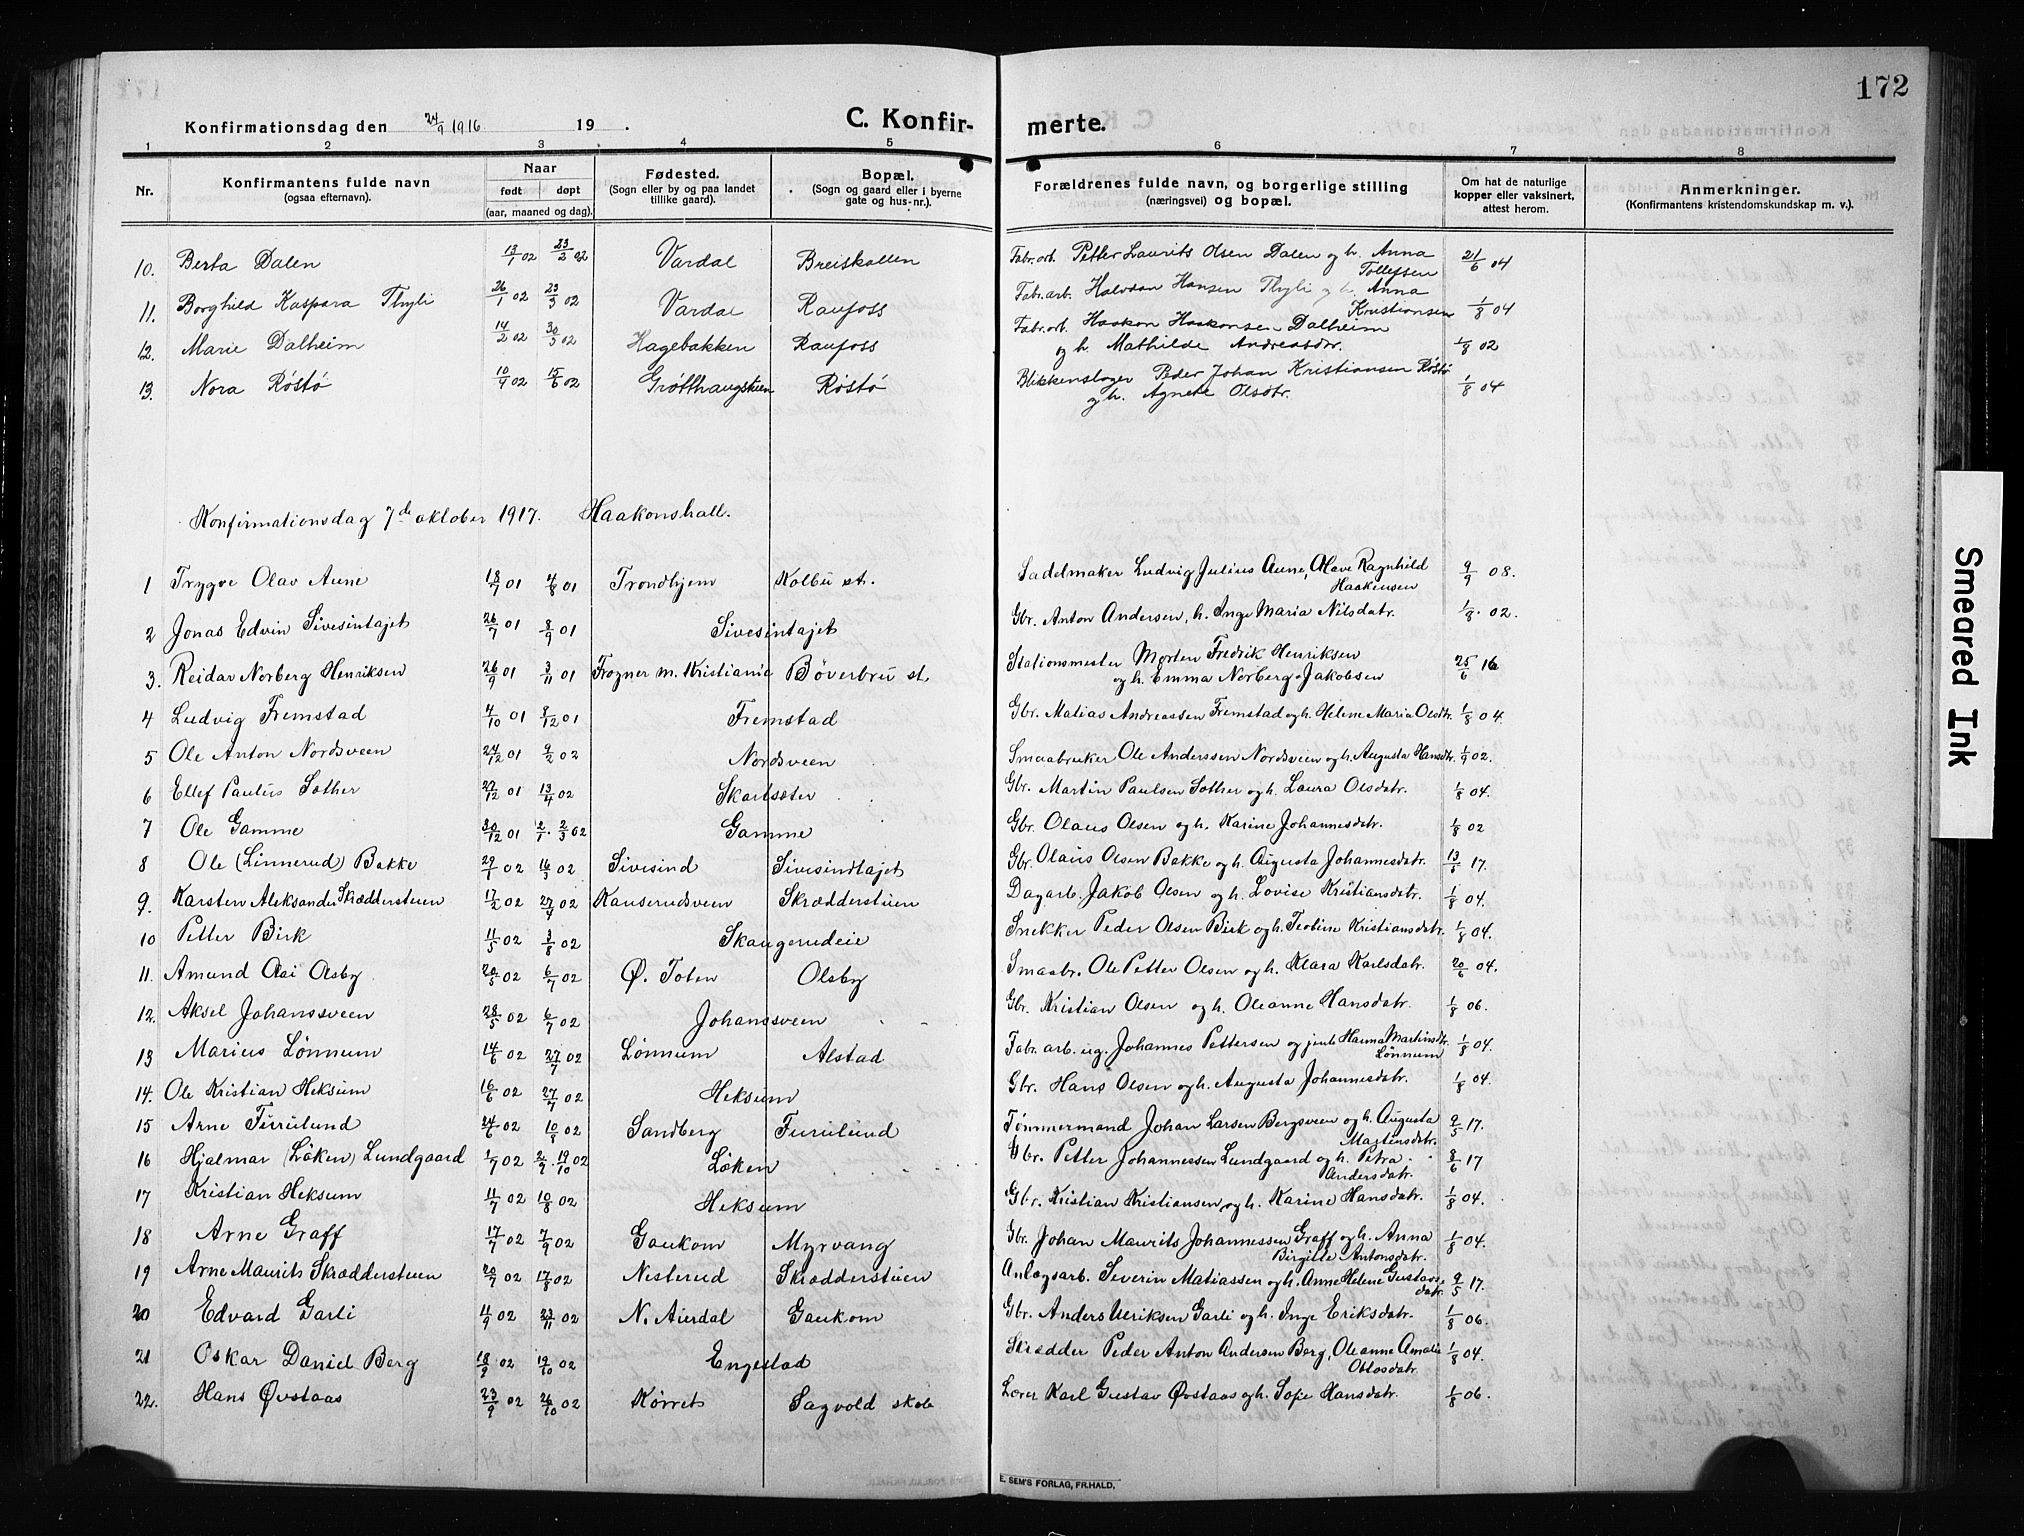 172
Konfirmationsdag den 24/9 1916 19 . C. Konfir-merte.
1 2 3 4 5 6 7 8
Nr. Konfirmantens fulde navn (ogsaa efternavn). Naar født døpt (aar, maaned og dag). Fødested. (Sogn eller by og paa landet tillike gaard). Bopæl. (Sogn og gaard eller i byerne gate og hus-nr.). Forældrenes fulde navn, og borgerlige stilling (næringsvei) og bopæl. Om hat de naturlige kopper eller vaksinert, attest herom. Anmerkninger. (Konfirmantens kristendomskundskap m. v.).
10. Berta Dalen 13/1 02 23/2 02 Vardal Breiskallen Fabr.arb. Petter Laurits Olsen Dalen og h. Anna Tollefsen 21/6 04
11. Borghild Kaspara Thyli 26/1 02 23/3 02 Vardal Raufoss Fabr.arb. Halvdan Hansen Thyli og h. Anna Kristiansen 1/8 04
12. Marie Dalheim 14/2 02 30/3 02 Hagebakken Raufoss Fabr.arb. Haakon Haakonsen Dalheim og h. Mathilde Andreasdr. 1/8 02
13. Nora Røstø 10/9 02 15/6 02 Grøtthaugstuen Røstø Blikkenslager Peder Johan Kristiansen Røstø og h. Agnete Olsdtr. 1/8 04
Konfirmationsdag 7de oktober 1917. Haakonshall.
1 Trygve Olav Aune 18/7 01 4/8 01 Trondhjem Kolbu st. Sadelmaker Ludvig Julius Aune, Olave Ragnhild Haakensen 9/9 08.
2 Jonas Edvin Sivesintajet 26/7 01 8/9 01 Sivesintajet Gbr. Anton Andersen, h. Inge Maria Nilsdatr. 1/9. 02.
3. Reidar Norberg Henriksen 26/9 01 3/11 01 Frogner m. Kristiania Bøverbru st. Stationsmester Morten Fredrik Henriksen og h. Emma Norberg Jakobsen 25/6 16
4 Ludvig Fremstad 4/10 01 8/12 01 Fremstad Gbr. Matias Andreassen Fremstad og h. Helene Maria Olsdtr. 1/8 04.
5 Ole Anton Nordsveen 24/12 01 9/2 02 Nordsveen Smaabruker Ole Anderssen Nordsveen og h. Augusta Hansdtr. 1/9 02.
6 Ellef Paulus Sother 27/12 01 13/4 02 Skartsæter Gbr. Martin Paulsen Sother og h. Laura Olsdatr. 1/8 04.
7 Ole Gamme 30/12 01 2/1. 2/3 02 Gamme Gbr. Olaus Olsen og h. Karine Johannesdatr. 1/8 02
8 Ole (Linnerud) Bakke 29/1 02 16/3 02 Sivesind Sivesindtajet Gbr. Olaus Olsen Bakke og h. Augusta Johannesdatr. 13/6 17.
9. Karsten Aleksander Skræddersteuen 17/2 02 27/4 02 Kauserudsveen Skrædderstuen Dagarb. Jakob Olsen og h. Lovise Kristiansdatr. 1/8 04.
10 Petter Birk 11/5 02 3/8 02 Skaugerudeie Snekker Peder Olsen Birk og h. Teoline Kristiansdatr. 1/8 04.
11. Amund Oai Olsby 20/5 02 6/7 02 Ø. Toten Olsby Smaabr. Ole Petter Olsen og h. Klara Karlsdatr. 20/6 04.
12. Aksel Johanssveen 28/5 02 6/7 02 Johanssveen Gbr. Kristian Olsen og h. Oleanne Hansdatr. 1/8 06.
13 Marius Lønnum 14/6 02 27/7 02 Lønnum Alstad Fabr. arb. ug. Johannes Pettersen og jente Hanna Martinsdtr. Lønnum 1/8 04.
14. Ole Kristian Heksum 16/6 02 27/7 02 Heksum Gbr. Hans Olsen og h. Augusta Johannesdatr. 1/8 04.
15 Arne Furulund 24/6 02 10/8 02 Sandberg Furulund Tømmermand Johan Larsen Bergsveen og h. Augusta Martensdatr. 2/5 17.
16 Hjalmar (Løken) Lundgaard 1/7 02 2/9. 19/10 02 Løken Gbr. Petter Johannessen Lundgaard og h. Petra Andersdatr. 8/6 17
17 Kristian Heksum 11/7 02 10/8 02 Heksum Gbr. Kristian Kristiansen og h. Karine Hansdatr. 1/8 04.
18 Arne Graff 17/7 02 7/9 02 Gaukom Myrvang Gbr. Johan Maurits Johannessen Graff og h. Anna Birgitte Antonsdatr. 1/8 04.
19 Arne Maurits Skrædderstuen 20/7 02 17/8 02 Nesterud Skrædderstuen Anlægsarb. Severin Matiassen og h. Anne Helene Gustavsdatr. 9/5 17.
20 Edvard Garli 4/9 02 23/11 02 N. Aurdal Gaukom Gbr. Anders Ulriksen Garli og h. Inge Eriksdatr. 1/8 06.
21 Oskar Daniel Berg 18/9 02 19/10 02 Engestad Skrædder Peder Anton Andersen Berg, Oleanne Amalie Ottosdatr. 1/8 04.
22. Hans Øvstaas 23/9 02 26/10 02 Kørret Sagvold skole Lærer Karl Gustav Øvstaas og h. Sofie Hansdatr. 1/8 06.
E. SEM'S FORLAG, FR.HALD.
Smeared Ink